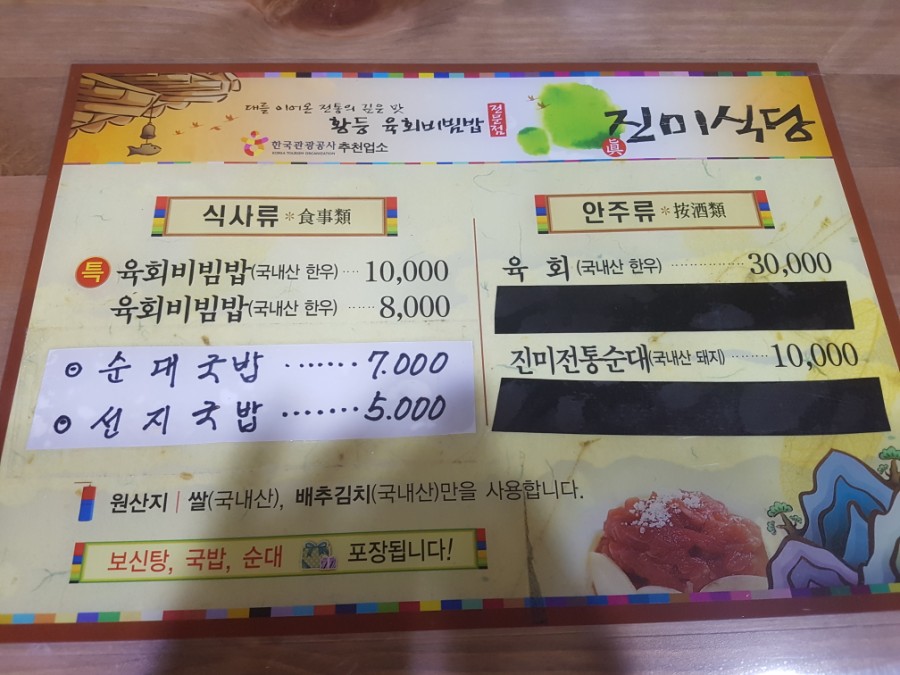 대를 이어온 전통의 깊은 맛
황등 육회비빔밥 전문점
한국관광공사 추천업소
KOREA TOURISM ORGANIZATION
진미식당
眞
식사류 * 食事類
특 육회비빔밥(국내산 한우) ···· 10,000
육회비빔밥(국내산 한우) ······ 8,000
⊙ 순대국밥 ······· 7.000
⊙ 선지국밥 ········ 5.000
안주류 * 按酒類
육 회 (국내산 한우) ················ 30,000
진미전통순대(국내산 돼지) ········ 10,000
원산지 | 쌀(국내산), 배추김치(국내산)만을 사용합니다.
보신탕, 국밥, 순대 포장됩니다!